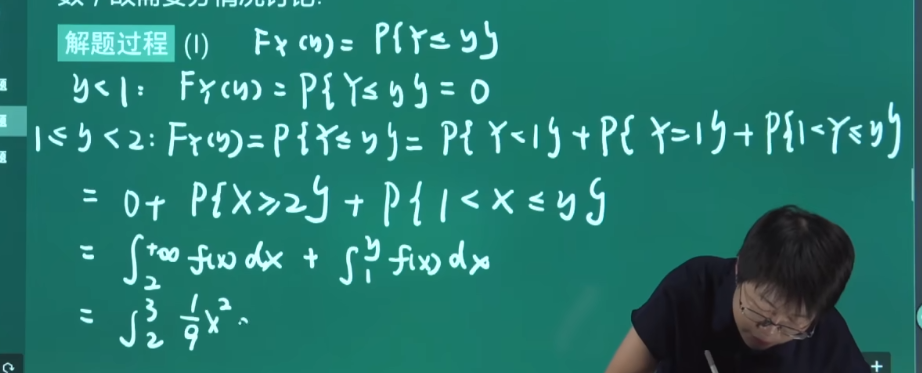 数,故需要分情况讨论.
解题过程 (1) FY(y) = P{Y≤y}
y<1: FY(y) = P{Y≤y} = 0
1≤y<2: FY(y) = P{Y≤y} = P{Y<1} + P{Y=1} + P{1<Y≤y}
= 0 + P{X≥2} + P{1<X≤y}
= ∫₂^{+∞} f(x)dx + ∫₁^y f(x)dx
= ∫₂³ 1/9 x²